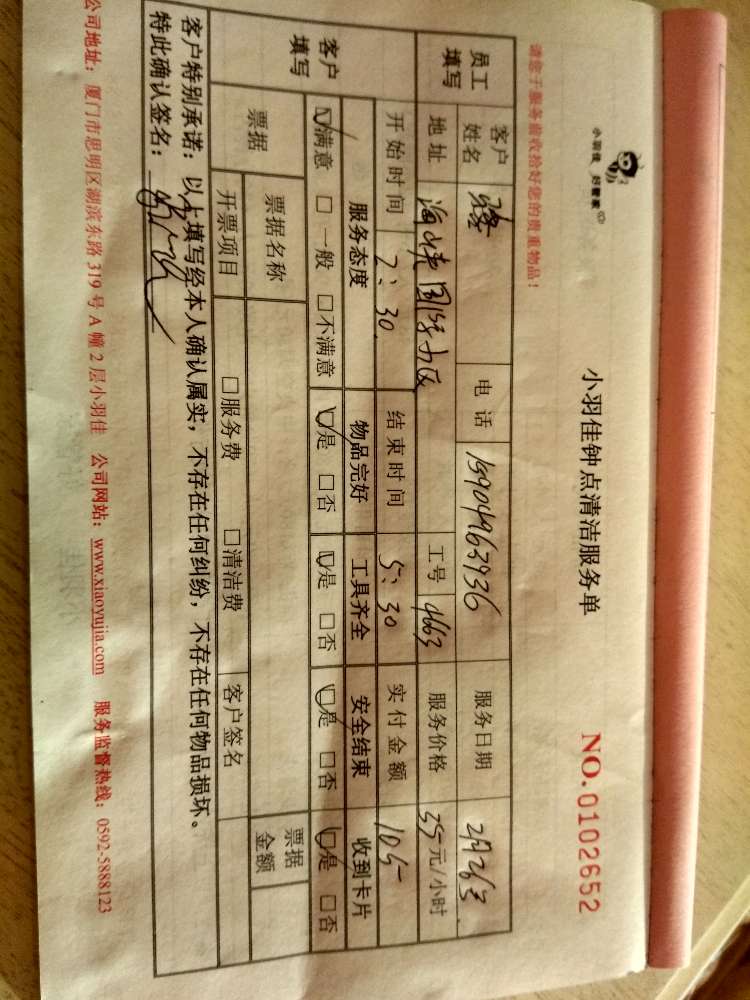 小羽佳 好管家
小羽佳钟点清洁服务单
NO.0102652
请您于服务前收拾好您的贵重物品！
员工填写 客户姓名 骆 电话 15904963936 服务日期 2月26日
地址 工号 4663 服务价格 35元/小时
客户填写 开始时间 2:30 结束时间 5:30 实付金额 105
服务态度 物品完好 工具齐全 安全结束 收到卡片
☑满意 □一般 □不满意 ☑是 □否 ☑是 □否 ☑是 □否 ☑是 □否
票据 票据名称 票据金额
开票项目 □服务费 □清洁费 客户签名
客户特别承诺：以上填写经本人确认属实，不存在任何纠纷，不存在任何物品损坏。
特此确认签名：
公司地址：厦门市思明区湖滨东路319号A幢2层小羽佳 公司网站：www.xiaoyujia.com 服务监督热线：0592-5888123